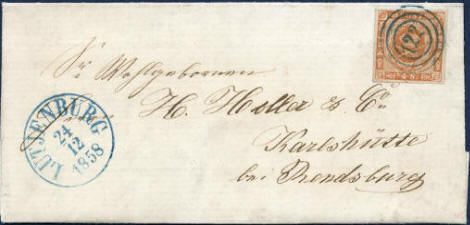 122
Sr Wohlgebornen
H. Holler & Co
Karlshütte
bei Rendsburg
LÜTJENBURG
24
12
1858